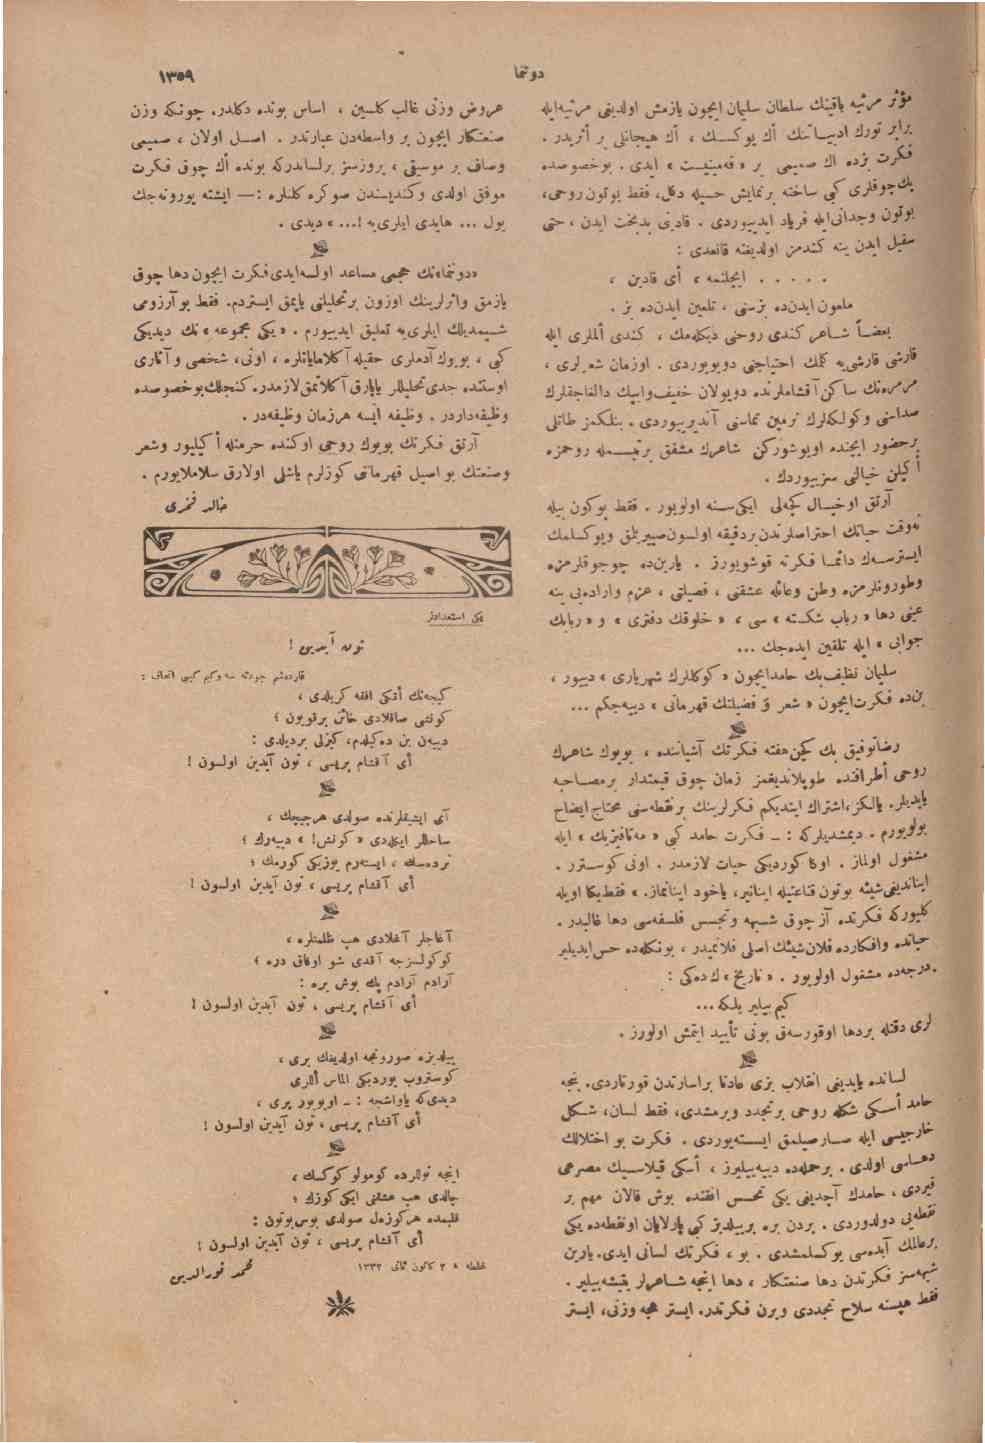 دوننما
١٣٥٩
مؤثر مرثيه باقينك سلطان سليمان ايچون يازمش اولديغی مرثيه‌ايله
برابر تورك ادبيـاتنك اڭ يوكـسـك ، اڭ هيجانلی بر أثريدر .
فكرت بزده اڭ صميمی بر » ايدی . بوخصوصده
پك‌چوقلری كبی ساخته برنمايش حسيله دكل، فقط بوتون روحی،
بوتون وجدانی‌ايله فرياد ايدييوردی . قادينی بدبخت ايدن ، حتی
سفيل ايدن ينه كندمز اولديغنه قانعدی :
. . . . . ايچلنمه ، أی قادين ،
ملعون ايدن‌ده بزسنی ، تلعين ايدن‌ده بز .
بعضـاً شـاعر كندی روحنی ديكله‌مك ، كندی ألملری ايله
قارشی قارشی‌يه كلمك احتياجنی دويويوردی . اوزمان شعرلری ،
مرمره‌نك ساكن آقشاملرنده دويولان خفيف‌وايپك دالغاجقلرك
صداسنی وكولكه‌لرك نرمين تماسنی آنديرييوردی . بنلكمز طاتلی
برحضور ايچنده اويوشوركن شاعرك مشفق برتبـسمله روحمزه
أكيلن خيالنی سزييوردك .
آرتق اوخيـال كچه‌لی ايكی‌سـنه اولويور . فقط بوكون بيله
نه‌وقت حياتك احتراصلرندن بردقيقه اولسون‌صييريلمق ويوكسلمك
ايسترسـه‌ك دائمـا فكرته قوشويورز . يارين‌ده چوجوقلرمزه
وطورونلرمزه وطن وعائله عشقنی ، فضيلتی ، عزم واراده‌يی ينه
عينی دها « رباب شكسته » سی ، « خلوقك دفتری » و « ربابك
جوابی » ايله تلقين ايده‌جك ...
سليمان نظيف‌بك حامدايچون « كوكللرك شهرياری » دييور ،
بن‌ده فكرت‌ايچون « شعر و فضيلتك قهرمانی » دييه‌جكم ...
رضاتوفيق بك كچن‌هفته فكرتك آشياننده ، بويوك شاعرك
روحی أطرافنده طوپلانديغمز زمان چوق قيمتدار برمصـاحبه
ياپديلر. يالكز،اشتراك ايتديكم فكرلرينك برنقطه‌سنی محتاج ايضاح
بولويورم . ديمشديلركه : ــ فكرت حامد كبی « مه‌تافيزيك » ايله
مشغول اولماز . اوكا كورديكی حيات لازمدر . اونی كوسـترر .
ايناندیغی‌شيئه بوتون قناعتيله اينانير، ياخود اينانماز. » فقط‌بكا اويله
كليوركه فكرتده آز چوق شـبهه وتجسس فلسفه‌سی دها غالبدر .
حياتده وافكارده فلان‌شيئك اصلی فلانميدر ، بونكله‌ده حس‌ايديلير
درجه‌ده مشغول اولويور . « تاريخ » ك‌ده‌كی :
كيم بيلير بلكه ...
لری دقتله بردها اوقورسه‌ق بونی تأييد ايتمش اولورز .
لسانده ياپديغی انقلاب بزی عادتا براسارتدن قورتاردی. بنجه
حامد أسـكی شكله روحی برتجدد ويرمشدی، فقط لسان، شـكل
خارجيسی ايله صـارصيلمق ايسـته‌يوردی . فكرت بو اختلالك
دهـاسی اولدی . برحمله‌ده دييه‌بيليرز ، أسكی قلاسـيك مصرعی
قيردی ، حامدك آچديغی يكی تحسس افقنده بوش قالان مهم بر
نقطه‌يی دولدوردی . بردن بره بريیلديز كبی پارلايان اونقطه‌ده يكی
برعالمك آبده‌سی يوكسلمشدی . بو ، فكرتك لسانی ايدی. يارين
شبهه‌سز فكرتدن دها صنعتكار ، دها اينجه شـاعرلر يتيشه‌بيلير .
فقط هپسنه سلاح تجددی ويرن فكرتدر. ايستر هجه وزنی، ايستر
عروض وزنی غالب كلسين ، اساس بونده دكلدر. چونكه وزن
صنعتكار ايچون بر واسطه‌دن عبارتدر . اصـل اولان ، صميمی
وصاف بر موسيقی ، پروزسز برلساندركه بونده اڭ چوق فكرت
موفق اولدی وكنديسـندن صوكره كلنلره :— ايشته يورونه‌جك
يول ... هايدی ايلری‌يه !... » ديدی .
«دوننما»نك حجمی مساعد اولسه‌ايدی‌فكرت ايچون دها چوق
يازمق واثرلرينك اوزون برتحليلنی ياپمق ايستردم. فقط بوآرزومی
شـيمديلك ايلری‌يه تعليق ايدييورم . « يكی مجموعه » نك ديديكی
كبی ، بويوك آدملری حقيله آكلامايانلره ، اونی، شخصی و آثاری
اوستنده جدی‌تحليللر ياپارق آكلاتمق‌لازمدر. كنجلك‌بوخصوصده
وظيفه‌داردر . وظيفه ايسه هرزمان وظيفه‌در .
آرتق فكرتك بويوك روحی اوكنده حرمتله أكيليور وشعر
وصنعتك بو اصيل قهرمانی كوزلرم ياشلی اولارق سلاملايورم .
خالد فخری
يكی استعدادلر
تون آيدين !
قارده‌شم جودته اتحاف :
كيجه‌نك أتكی افقه كريلدی ،
كونشی صاقلادی خائن برقويون ؛
دييه‌ن بن ده‌كيلدم، كيزلی برديلدی :
أی آقشام پريسی ، تون آيدين اولسون !
آی ايشيقلرنده صولدی هرچيچك ،
ساحللر ايكله‌دی « كونش! » دييه‌رك ؛
نرده‌سك ، ايسته‌رم يوزيكی كورمك ؛
أی آقشام پريسی ، تون آيدين اولسون !
آغاجلر آغلادی هپ ظلمتلره ،
كوكولسزجه آقدی شو اوفاق دره ؛
آرادم آرادم پك بوش يره :
أی آقشام پريسی ، تون آيدين اولسون !
ييلديزه صورونجه اولديغك يری ،
كوستروب بوردیكی الماس أللری
ديدی‌كه ياواشجه : ــ اويويور پری ،
أی آقشام پريسی ، تون آيدين اولسون !
اينجه تولرده كومولو كوكسك ،
چالدی هپ عشقنی ايكی كوزك ؛
قلبمده هركوزه‌ل صولدی بوس‌بوتون :
أی آقشام پريسی ، تون آيدين اولسون !
غلطه ، ٢ كانون ثانی ١٣٣٢
محمد نورالدين